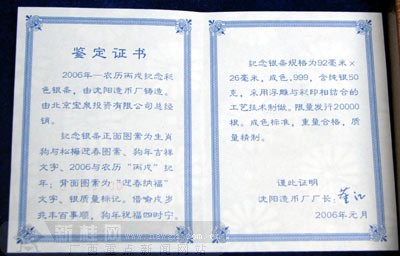 鉴定证书
2006年—农历丙戌纪念彩
色银条，由沈阳造币厂铸造。
由北京宝泉投资有限公司总经
销。
纪念银条正面图案为生肖
狗与松梅迎春图案、狗年吉祥
文字、2006与农历“丙戌”纪
年；背面图案为“迎春纳福”
文字、银质量标记。借喻戌岁
兆丰百事顺，狗年祝福四时宁
纪念银条规格为92毫米×
26毫米，成色.999，含纯银50
克，采用浮雕与彩印相结合的
工艺技术制做。限量发行20000
根。成色标准，重量合格，质
量精制。
谨此证明
沈阳造币厂厂长：
2006年元月
新桂网